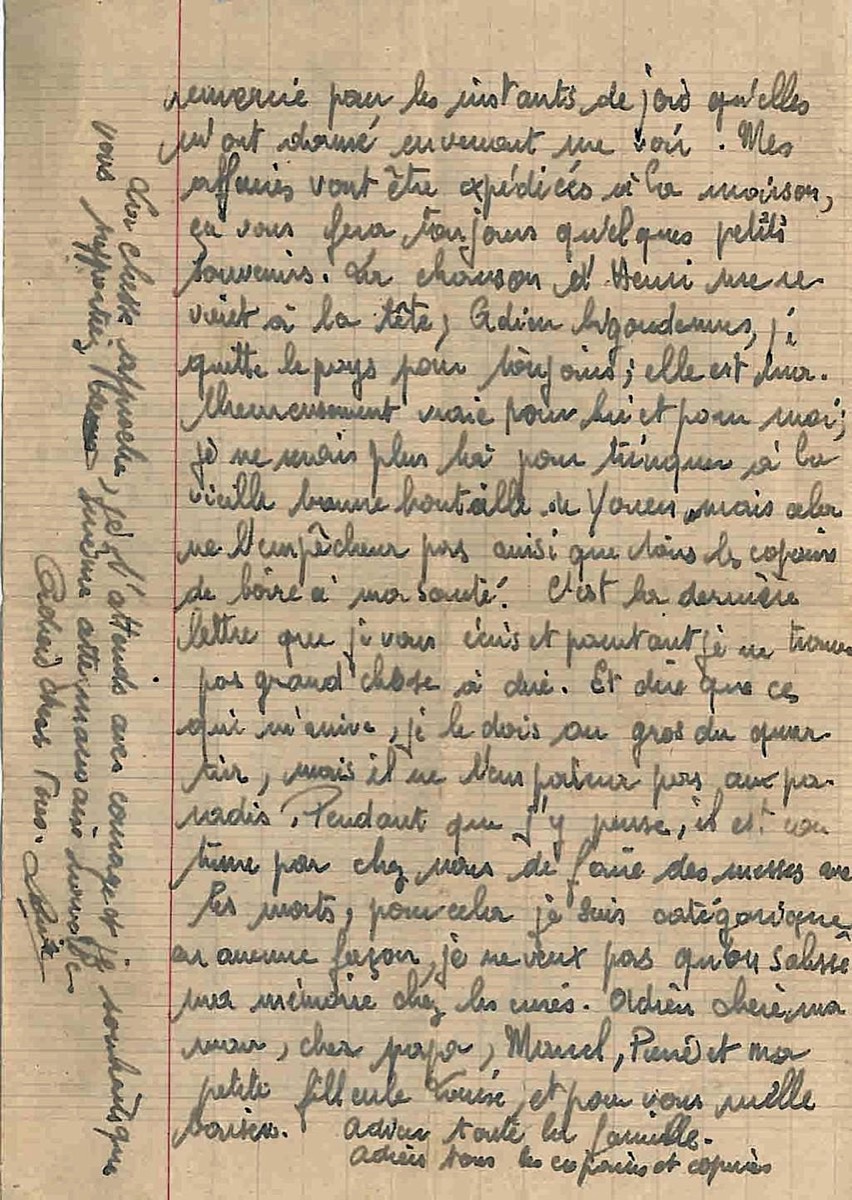 remercie pour les instants de joie qu'elles
m'ont donné en venant me voir. Mes
affaires vont être expédiées à la maison,
ça vous fera toujours quelques petits
souvenirs. La chanson d'Henri me re-
vient à la tête, Adieu bigoudennes, je
quitte le pays pour toujours; elle est mal-
heureusement vraie pour lui et pour moi;
je ne serais plus là pour trinquer à la
vieille bonne bouteille de Youen, mais cela
ne l'empêchera pas ainsi que tous les copains
de boire à ma santé. C'est la dernière
lettre que je vous écris et pourtant je ne trouve
pas grand'chose à dire. Et dire que ce
qui m'arrive, je le dois au gros du quar-
tier, mais il ne l'emportera pas aux pa-
radis. Pendant que j'y pense, il est cou
tume par chez nous de faire des messes avec
les morts, pour cela je suis catégorique
en aucune façon, je ne veux pas qu'on salisse
ma mémoire chez les curés. Adieu chère ma
man, cher papa, Marcel, Pierre et ma
petite filleule Louise, et pour vous mille
baisers. Adieu toute la famille.
Adieu tous les copains et copines
La chute approche, je l'attends avec courage et je souhaite que
vous supportiez même atte
Adieu chers Tous.